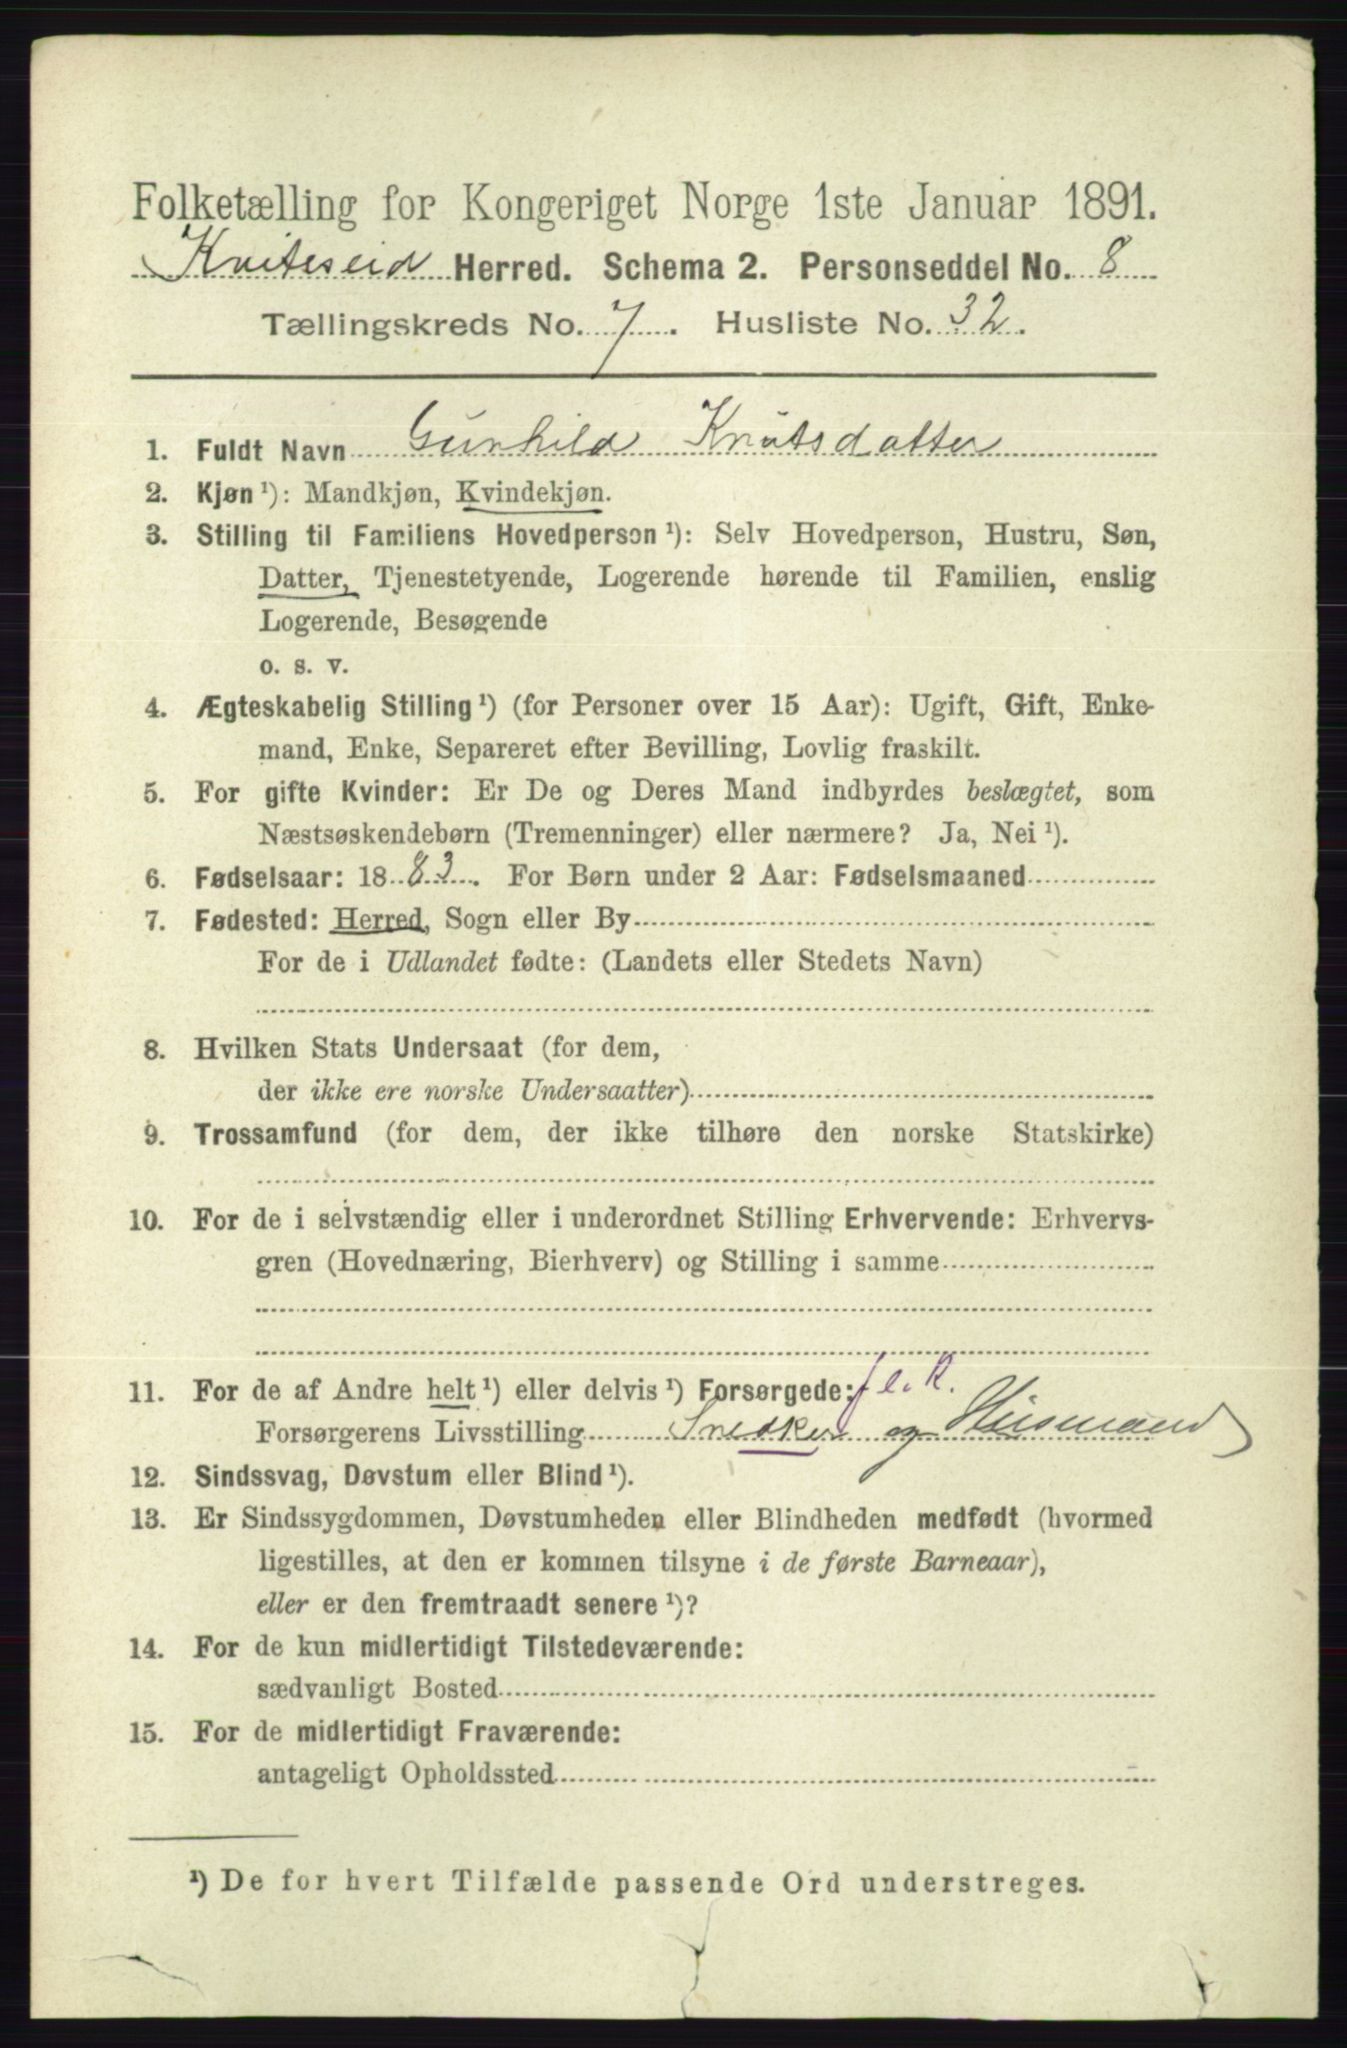 Folketælling for Kongeriget Norge 1ste Januar 1891.
Kviteseid Herred. Schema 2. Personseddel No. 8
Tællingskreds No. 7. Husliste No. 32.
1. Fuldt Navn Gunhild Knutsdatter
2. Kjøn ¹): Mandkjøn, Kvindekjøn.
3. Stilling til Familiens Hovedperson ¹): Selv Hovedperson, Hustru, Søn,
Datter, Tjenestetyende, Logerende hørende til Familien, enslig
Logerende, Besøgende
o. s. v.
4. Ægteskabelig Stilling ¹) (for Personer over 15 Aar): Ugift, Gift, Enke-
mand, Enke, Separeret efter Bevilling, Lovlig fraskilt.
5. For gifte Kvinder: Er De og Deres Mand indbyrdes beslægtet, som
Næstsøskendebørn (Tremenninger) eller nærmere? Ja, Nei ¹).
6. Fødselsaar: 1883. For Børn under 2 Aar: Fødselsmaaned
7. Fødested: Herred, Sogn eller By
For de i Udlandet fødte: (Landets eller Stedets Navn)
8. Hvilken Stats Undersaat (for dem,
der ikke ere norske Undersaatter)
9. Trossamfund (for dem, der ikke tilhøre den norske Statskirke)
10. For de i selvstændig eller i underordnet Stilling Erhvervende: Erhvervs-
gren (Hovednæring, Bierhverv) og Stilling i samme
11. For de af Andre helt ¹) eller delvis ¹) Forsørgede:
Forsørgerens Livsstilling Snedker og Husmand
12. Sindssvag, Døvstum eller Blind ¹).
13. Er Sindssygdommen, Døvstumheden eller Blindheden medfødt (hvormed
ligestilles, at den er kommen tilsyne i de første Barneaar),
eller er den fremtraadt senere ¹)?
14. For de kun midlertidigt Tilstedeværende:
sædvanligt Bosted
15. For de midlertidigt Fraværende:
antageligt Opholdssted
¹) De for hvert Tilfælde passende Ord understreges.